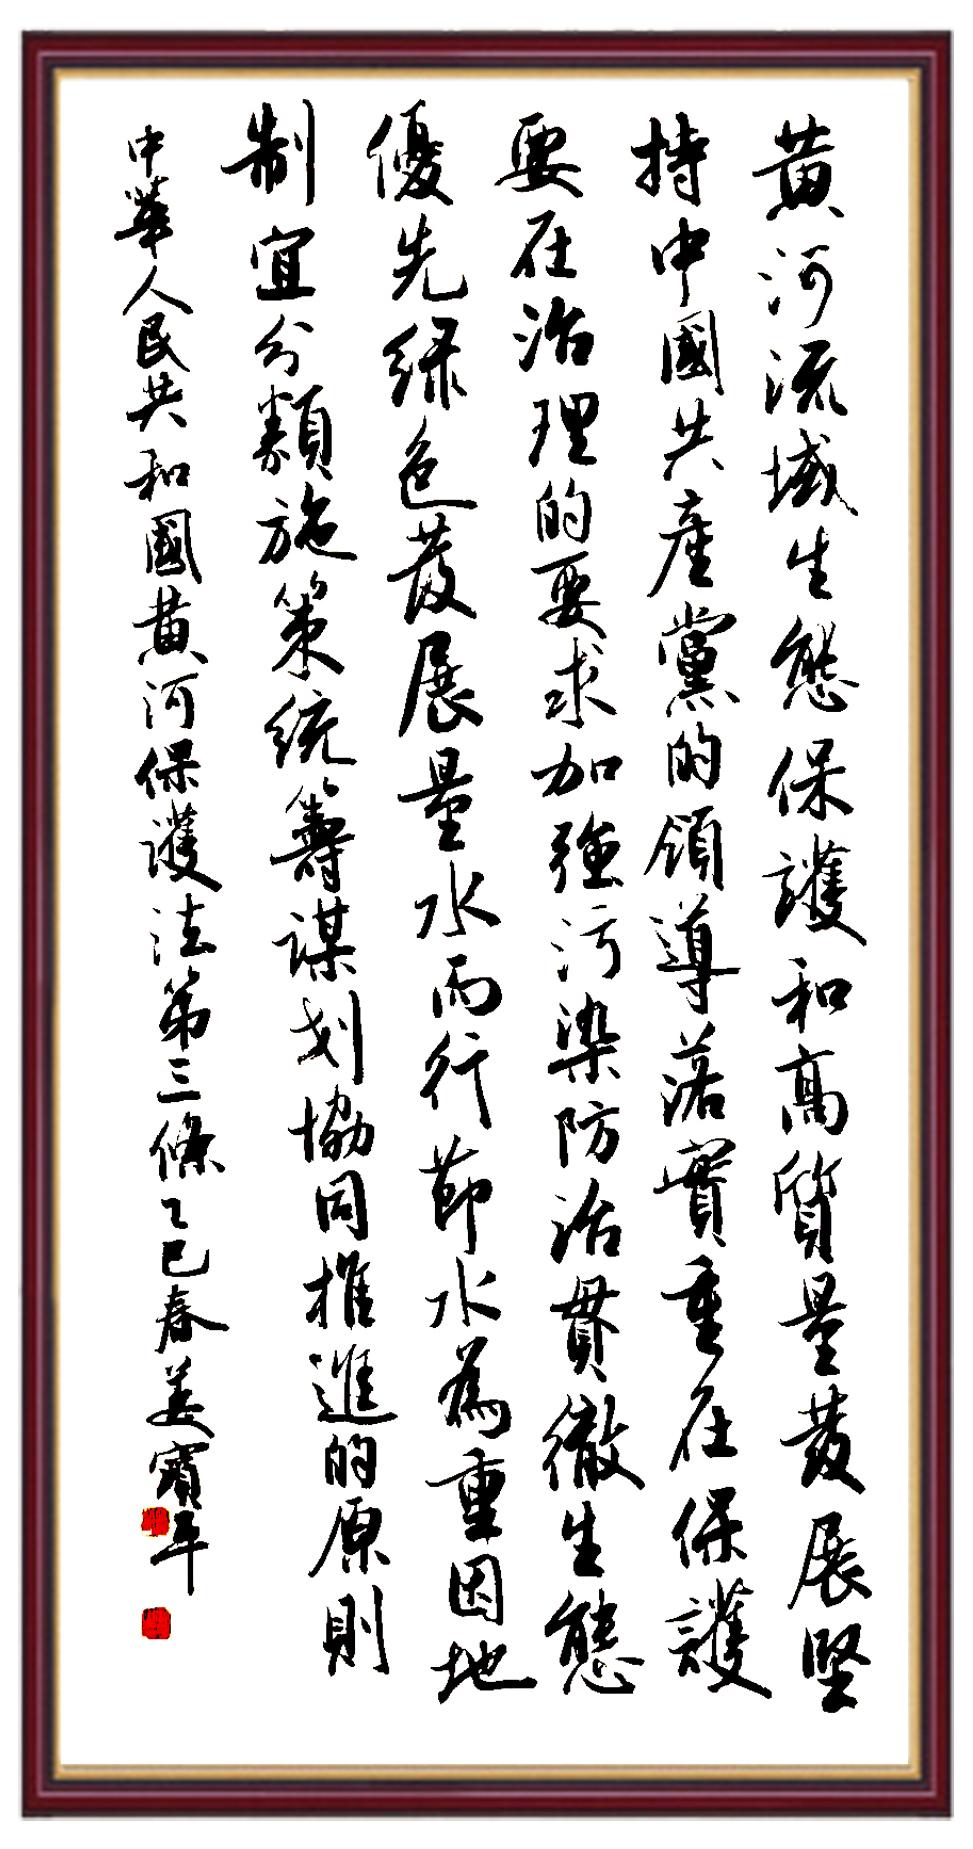 黄河流域生態保護和高質量發展堅
持中國共產黨的領導落實重在保護
要在治理的要求加強污染防治貫徹生態
優先綠色發展量水而行節水為重因地
制宜分類施策統籌謀划協同推進的原則
中華人民共和國黄河保護法第三條乙巳春姜寶平